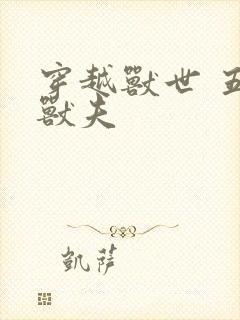 穿越獸世 五
獸夫
凱薩